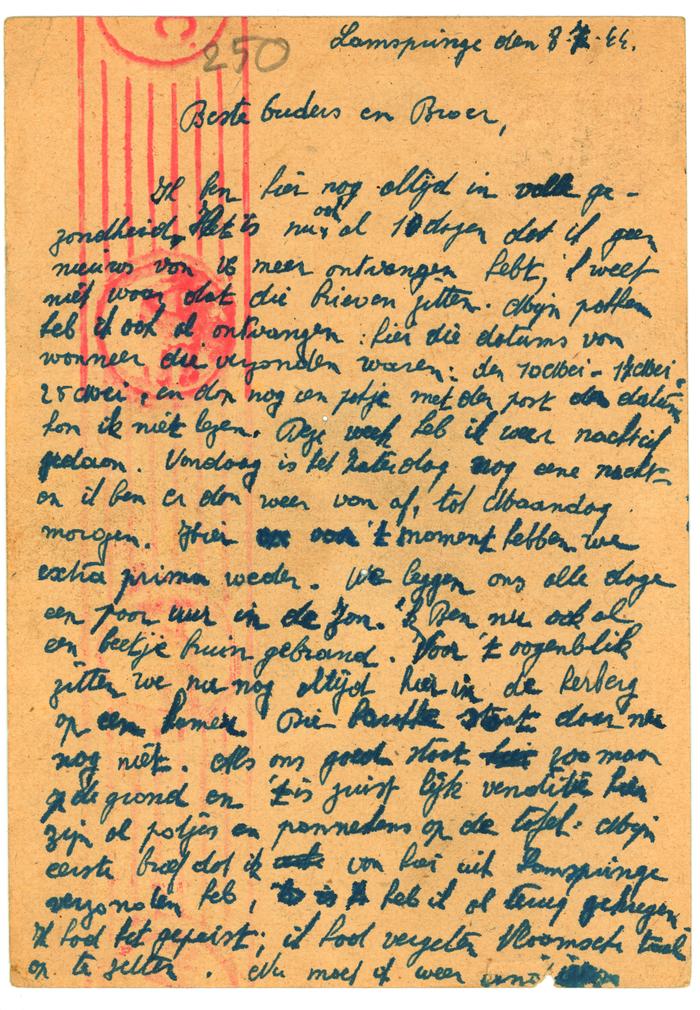 250
Lamspringe den 8-7-44.
Beste Ouders en Broer,
Ik ben hier nog altijd in volle ge-
zondheid, Het is nu ook al 10 dagen dat ik geen
nieuws van U meer ontvangen hebt, 'k weet
niet waar dat die brieven zitten. Mijn potten
heb ik ook al ontvangen: hier die datums van
wanneer die verzonden waren: den 10 Mei - 14 Mei -
25 Mei, en dan nog een potje met der post datum
kon ik niet lezen. Deze week heb ik weer nachtcif
gedaan. Vandaag is het Zaterdag nog eene nacht
en ik ben er dan weer van af, tot Maandag
morgen. Hier van 't moment hebben we
extra prima weder. We leggen ons alle dage
een paar uur in de Zon. 'k Ben nu ook al
een beetje bruin gebrand. Voor 't oogenblik
zitten we nu nog altijd hier in de herberg
op een kamer. Die staat daar nu
nog niet. Als ons goed staat zoo maar
op de grond en 't is juist lijk venditie hier
zijn al potjes en pannekens op de tafel: Mijn
eerste brief dat ik van hier uit Lamspringe
verzonden heb, heb ik al terug gekregen
Ik had het gepeist, ik had vergeten Vlaamsche taal
op te zetten. Nu moet ik weer